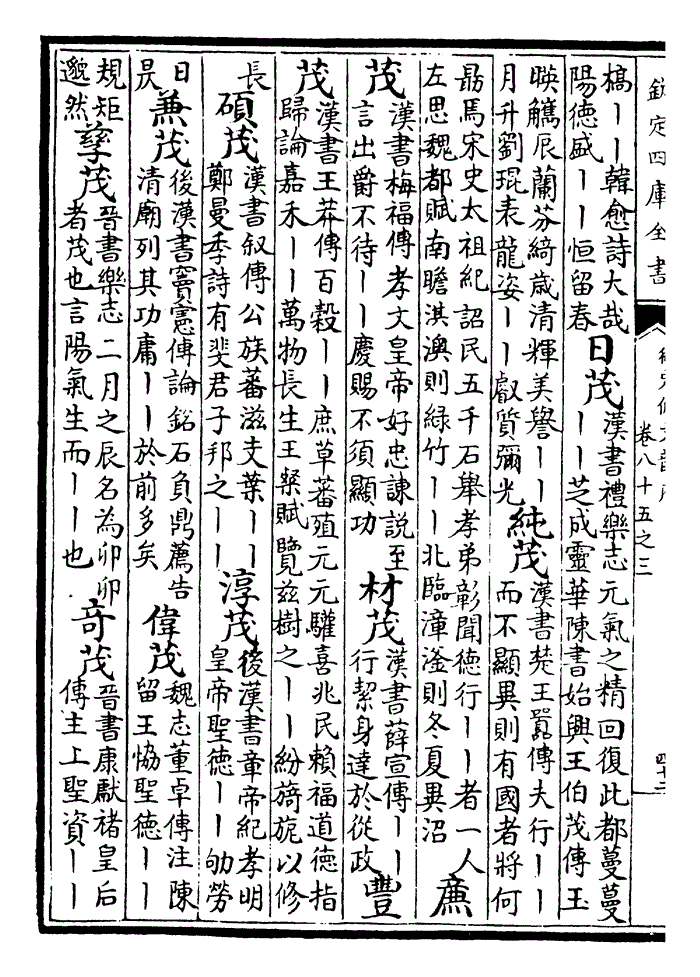 欽定四庫全書
卷八十五之三
槁丨丨韓愈詩大哉
陽德盛丨丨恒留春
日茂
漢書禮樂志元氣之精回復此都蔓蔓
丨丨芝成靈華陳書始興王伯茂傳玉
暎觿辰蘭芬綺歲清輝美譽丨丨
月升劉琨表龍姿丨丨叡質彌光
純茂
漢書楚王嚚傳夫行丨丨
而不顯異則有國者將何
勗焉宋史太祖紀詔民五千石舉孝弟彰聞德行丨丨者一人
左思魏都賦南瞻淇澳則綠竹丨丨北臨漳滏則冬夏異沼
廉
茂
漢書梅福傳孝文皇帝好忠諫說至
言出爵不待丨丨慶賜不須顯功
材茂
漢書薛宣傳丨丨
行絜身達於從政
豐
茂
漢書王莽傳百穀丨丨庶草蕃殖元元驩喜兆民賴福道德指
歸論嘉禾丨丨萬物長生王粲賦覽兹樹之丨丨紛旖旎以修
長
碩茂
漢書叙傳公族蕃滋支葉丨丨
鄭曼季詩有斐君子邦之丨丨
淳茂
後漢書章帝紀孝明
皇帝聖德丨丨劬勞
日
昃
兼茂
後漢書竇憲傳論銘石負鼎薦告
清廟列其功庸丨丨於前多矣
偉茂
魏志董卓傳注陳
留王恊聖德丨丨
規矩
邈然
孳茂
晉書樂志二月之辰名為卯卯
者茂也言陽氣生而丨丨也
奇茂
晉書康獻褚皇后
傳主上聖資丨丨